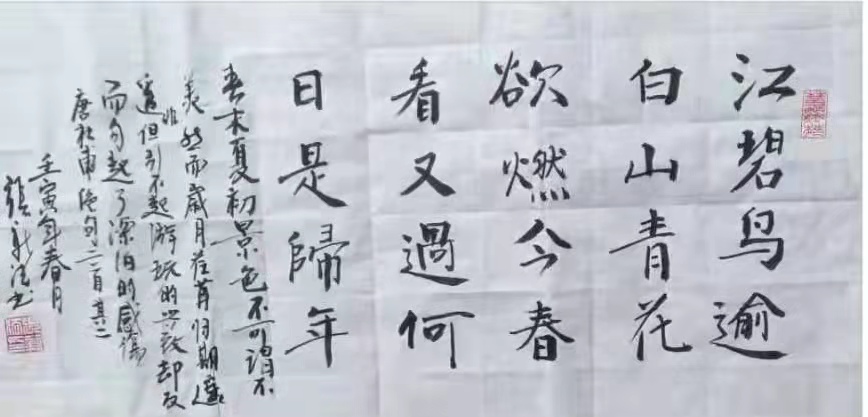 江碧鸟逾
白山青花
欲燃今春
看又過何
日是歸年
春末夏初景色不可谓不
美然而歲月荏苒归期遥
遥非但引不起游玩的兴致却反
而勾起了漂泊的感傷
唐杜甫绝句二首其二
壬寅年春月